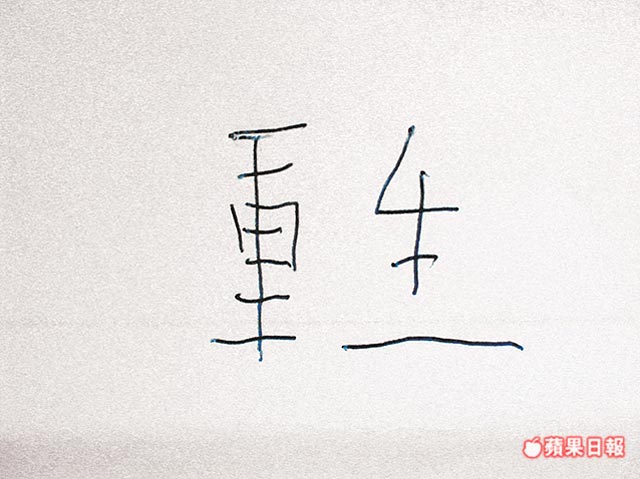 重生
蘋果日報